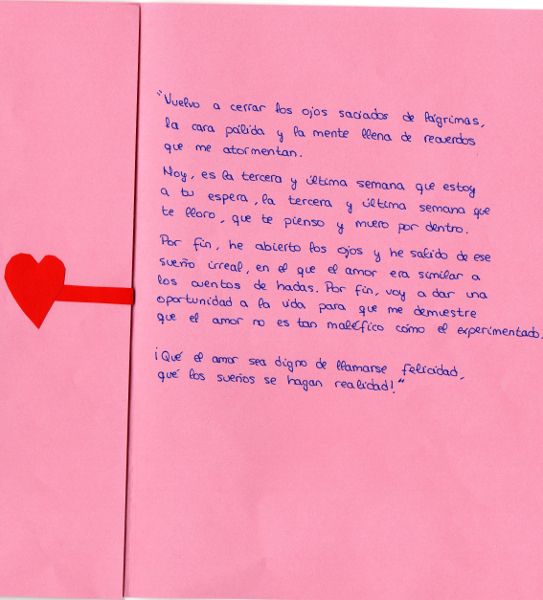 "Vuelvo a cerrar los ojos saciados de lágrimas,
la cara pálida y la mente llena de recuerdos
que me atormentan.
Hoy, es la tercera y última semana que estoy
a tu espera, la tercera y última semana que
te lloro, que te pienso y muero por dentro.
Por fin, he abierto los ojos y he salido de ese
sueño irreal, en el que el amor era similar a
los cuentos de hadas. Por fin, voy a dar una
oportunidad a la vida para que me demuestre
que el amor no es tan maléfico cómo el experimentado.
¡Qué el amor sea digno de llamarse felicidad,
qué los sueños se hagan realidad!"